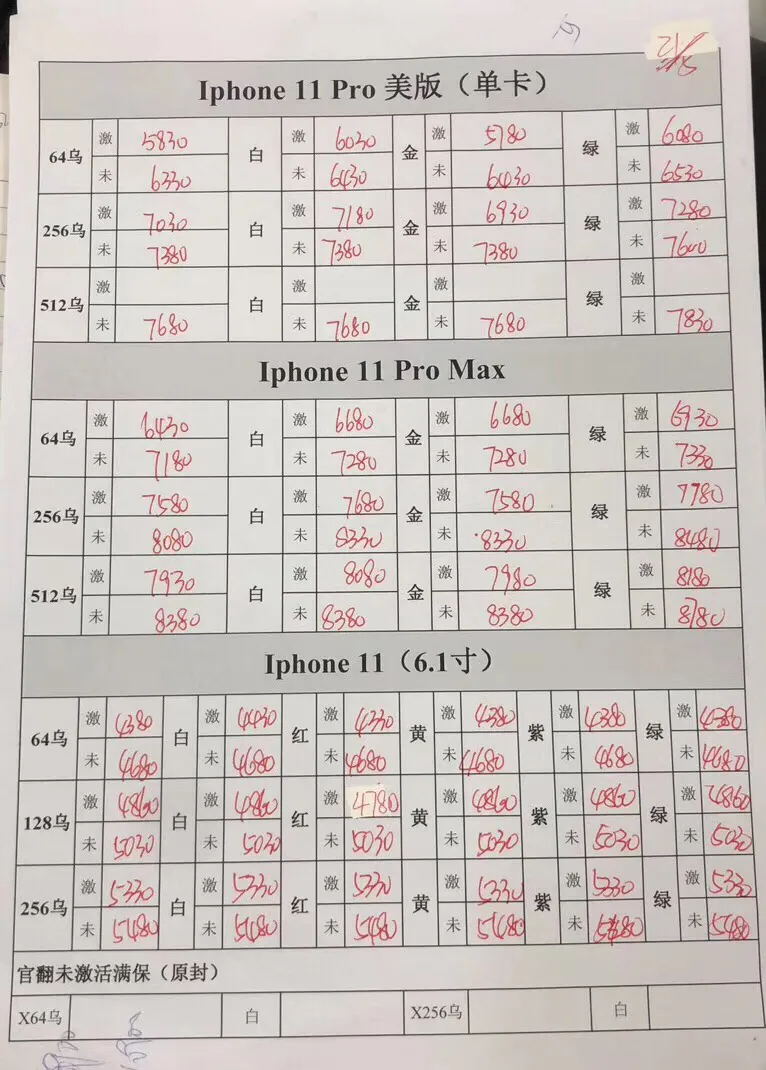 21/5
Iphone 11 Pro 美版（单卡）
64乌 激 5830 白 激 6030 金 激 5780 绿 激 6080
未 6330 未 6430 未 6430 未 6530
256乌 激 7030 白 激 7180 金 激 6930 绿 激 7280
未 7380 未 7380 未 7380 未 7640
512乌 激 白 激 金 激 绿 激
未 7680 未 7680 未 7680 未 7830
Iphone 11 Pro Max
64乌 激 6430 白 激 6680 金 激 6680 绿 激 6930
未 7180 未 7280 未 7280 未 7330
256乌 激 7580 白 激 7680 金 激 7580 绿 激 7780
未 8080 未 8330 未 8330 未 8480
512乌 激 7930 白 激 8080 金 激 7980 绿 激 8180
未 8380 未 8380 未 8380 未 8780
Iphone 11（6.1寸）
64乌 激 4380 白 激 4430 红 激 4330 黄 激 4380 紫 激 4380 绿 激 4380
未 4680 未 4680 未 4680 未 4680 未 4680 未 4680
128乌 激 4860 白 激 4860 红 激 4780 黄 激 4860 紫 激 4860 绿 激 4860
未 5030 未 5030 未 5030 未 5030 未 5030 未 5030
256乌 激 5330 白 激 5330 红 激 5330 黄 激 5330 紫 激 5330 绿 激 5330
未 5480 未 5480 未 5480 未 5480 未 5480 未 5480
官翻未激活满保（原封）
X64乌 白 X256乌 白